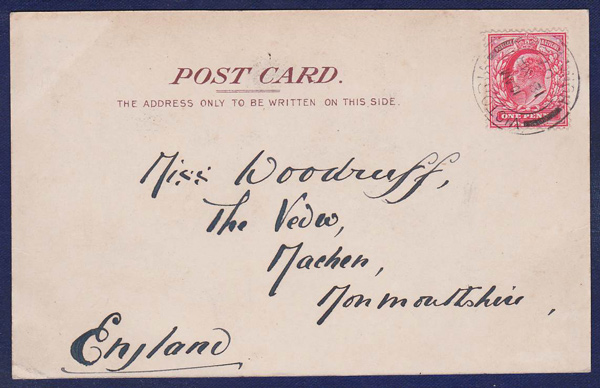 POST CARD.
THE ADDRESS ONLY TO BE WRITTEN ON THIS SIDE.
ONE PENNY
Miss Woodruff,
The Vedw,
Machen,
Monmouthshire,
England